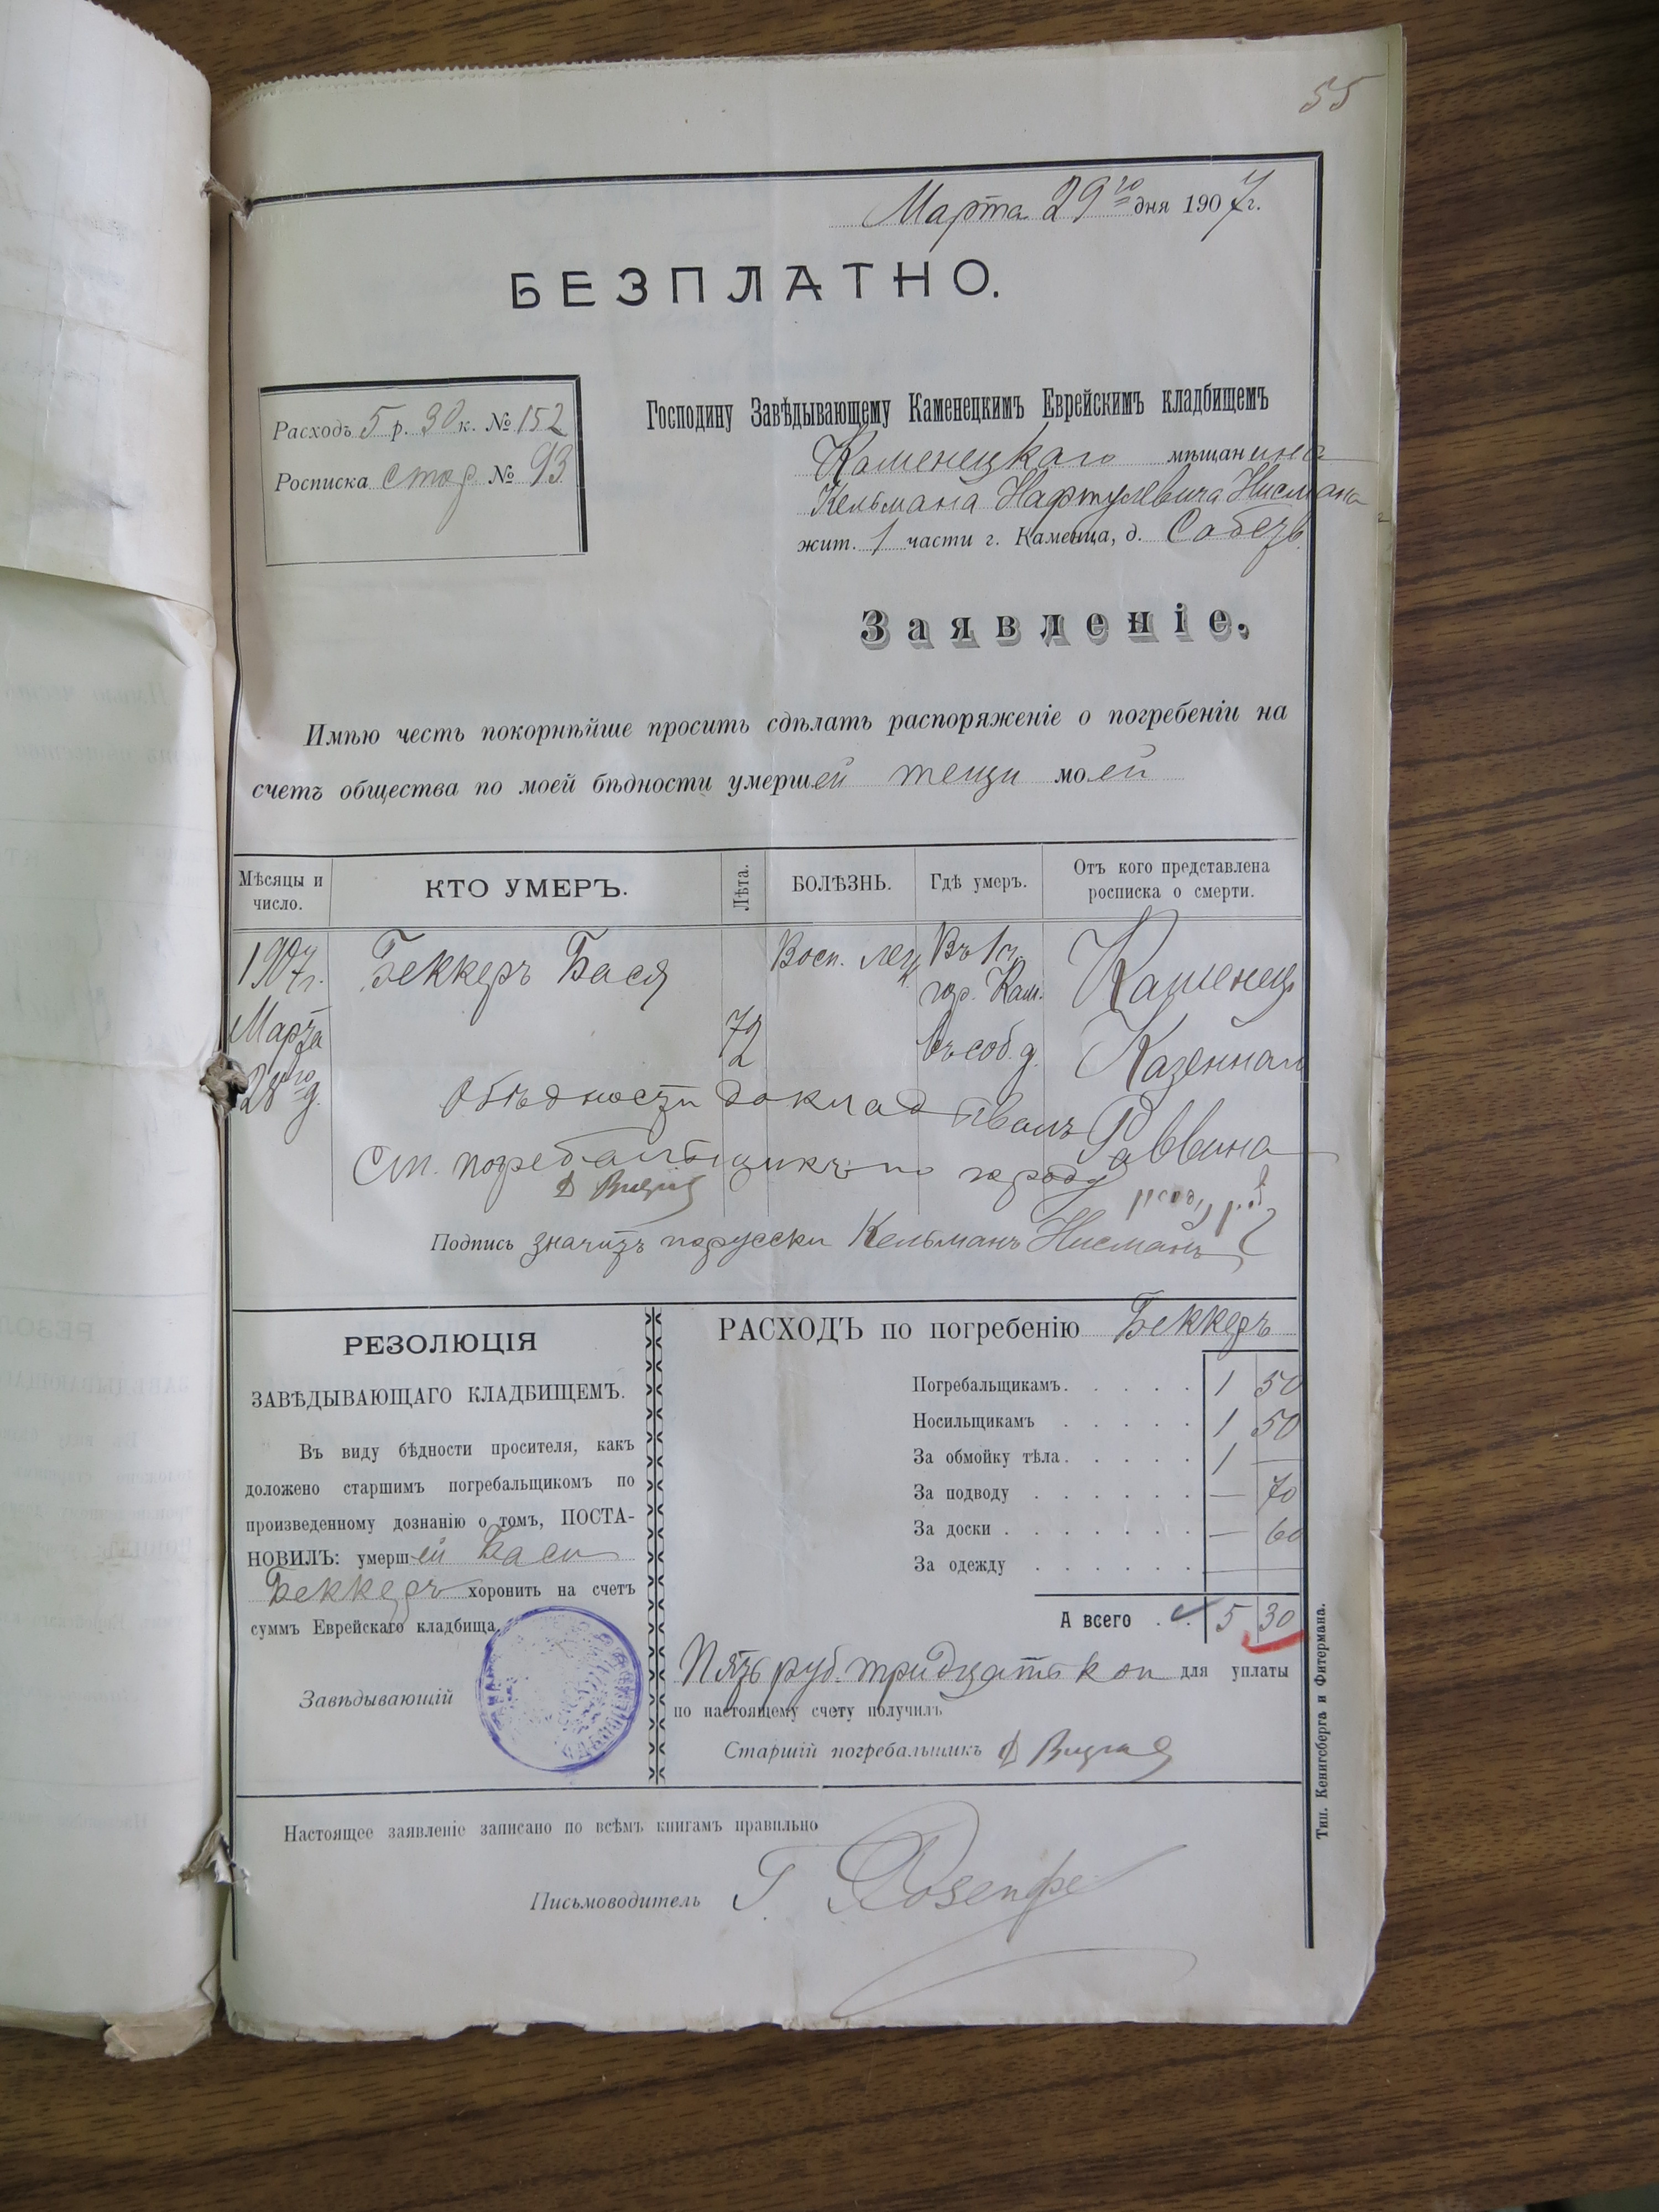 55
Марта 29го дня 1907 г.
БЕЗПЛАТНО.
Расходъ 5 р. 30 к. № 152
Росписка стар. № 93
Господину Завѣдывающему Каменецкимъ Еврейскимъ кладбищемъ
Каменецкаго мѣщанина
Кельмана Нафтулевича Нисмана
жит. 1 части г. Каменца, д.
Заявленіе.
Имѣю честь покорнѣйше просить сдѣлать распоряженіе о погребеніи на
счетъ общества по моей бѣдности умершей тещи моей
Мѣсяцы и число.
КТО УМЕРЪ.
Лѣта.
БОЛѢЗНЬ.
Гдѣ умеръ.
Отъ кого представлена росписка о смерти.
1907 г. Беккеръ Бася Восп. лег. Въ 1 ч. Каменец.
гор. Кам.
Марта 72 въ соб. д. Казеннаго
28го д. Раввина
О бѣдности докладывалъ
Ст. погребальщикъ по городу
Подпись значитъ порусски Кельманъ Нисманъ
РЕЗОЛЮЦІЯ
ЗАВѢДЫВАЮЩАГО КЛАДБИЩЕМЪ.
Въ виду бѣдности просителя, какъ
доложено старшимъ погребальщикомъ по
произведенному дознанію о томъ, ПОСТА-
НОВИЛЪ: умершей Баси
Беккеръ хоронить на счетъ
суммъ Еврейскаго кладбища.
Завѣдывающій
РАСХОДЪ по погребенію Беккеръ
Погребальщикамъ. 1 50
Носильщикамъ 1 50
За обмойку тѣла. 1 —
За подводу — 70
За доски — 60
За одежду —
А всего 5 30
Пять руб. тридцать коп для уплаты
по настоящему счету получилъ
Старшій погребальщикъ
Настоящее заявленіе записано по всѣмъ книгамъ правильно
Письмоводитель Г.
Тип. Кенигсберга и Фитермана.